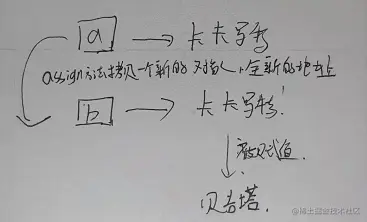 a → 卡卡写手
assign方法拷贝一个新的对象,全新的地址
b → 卡卡写手
被赋值
贝吉塔
@稀土掘金技术社区